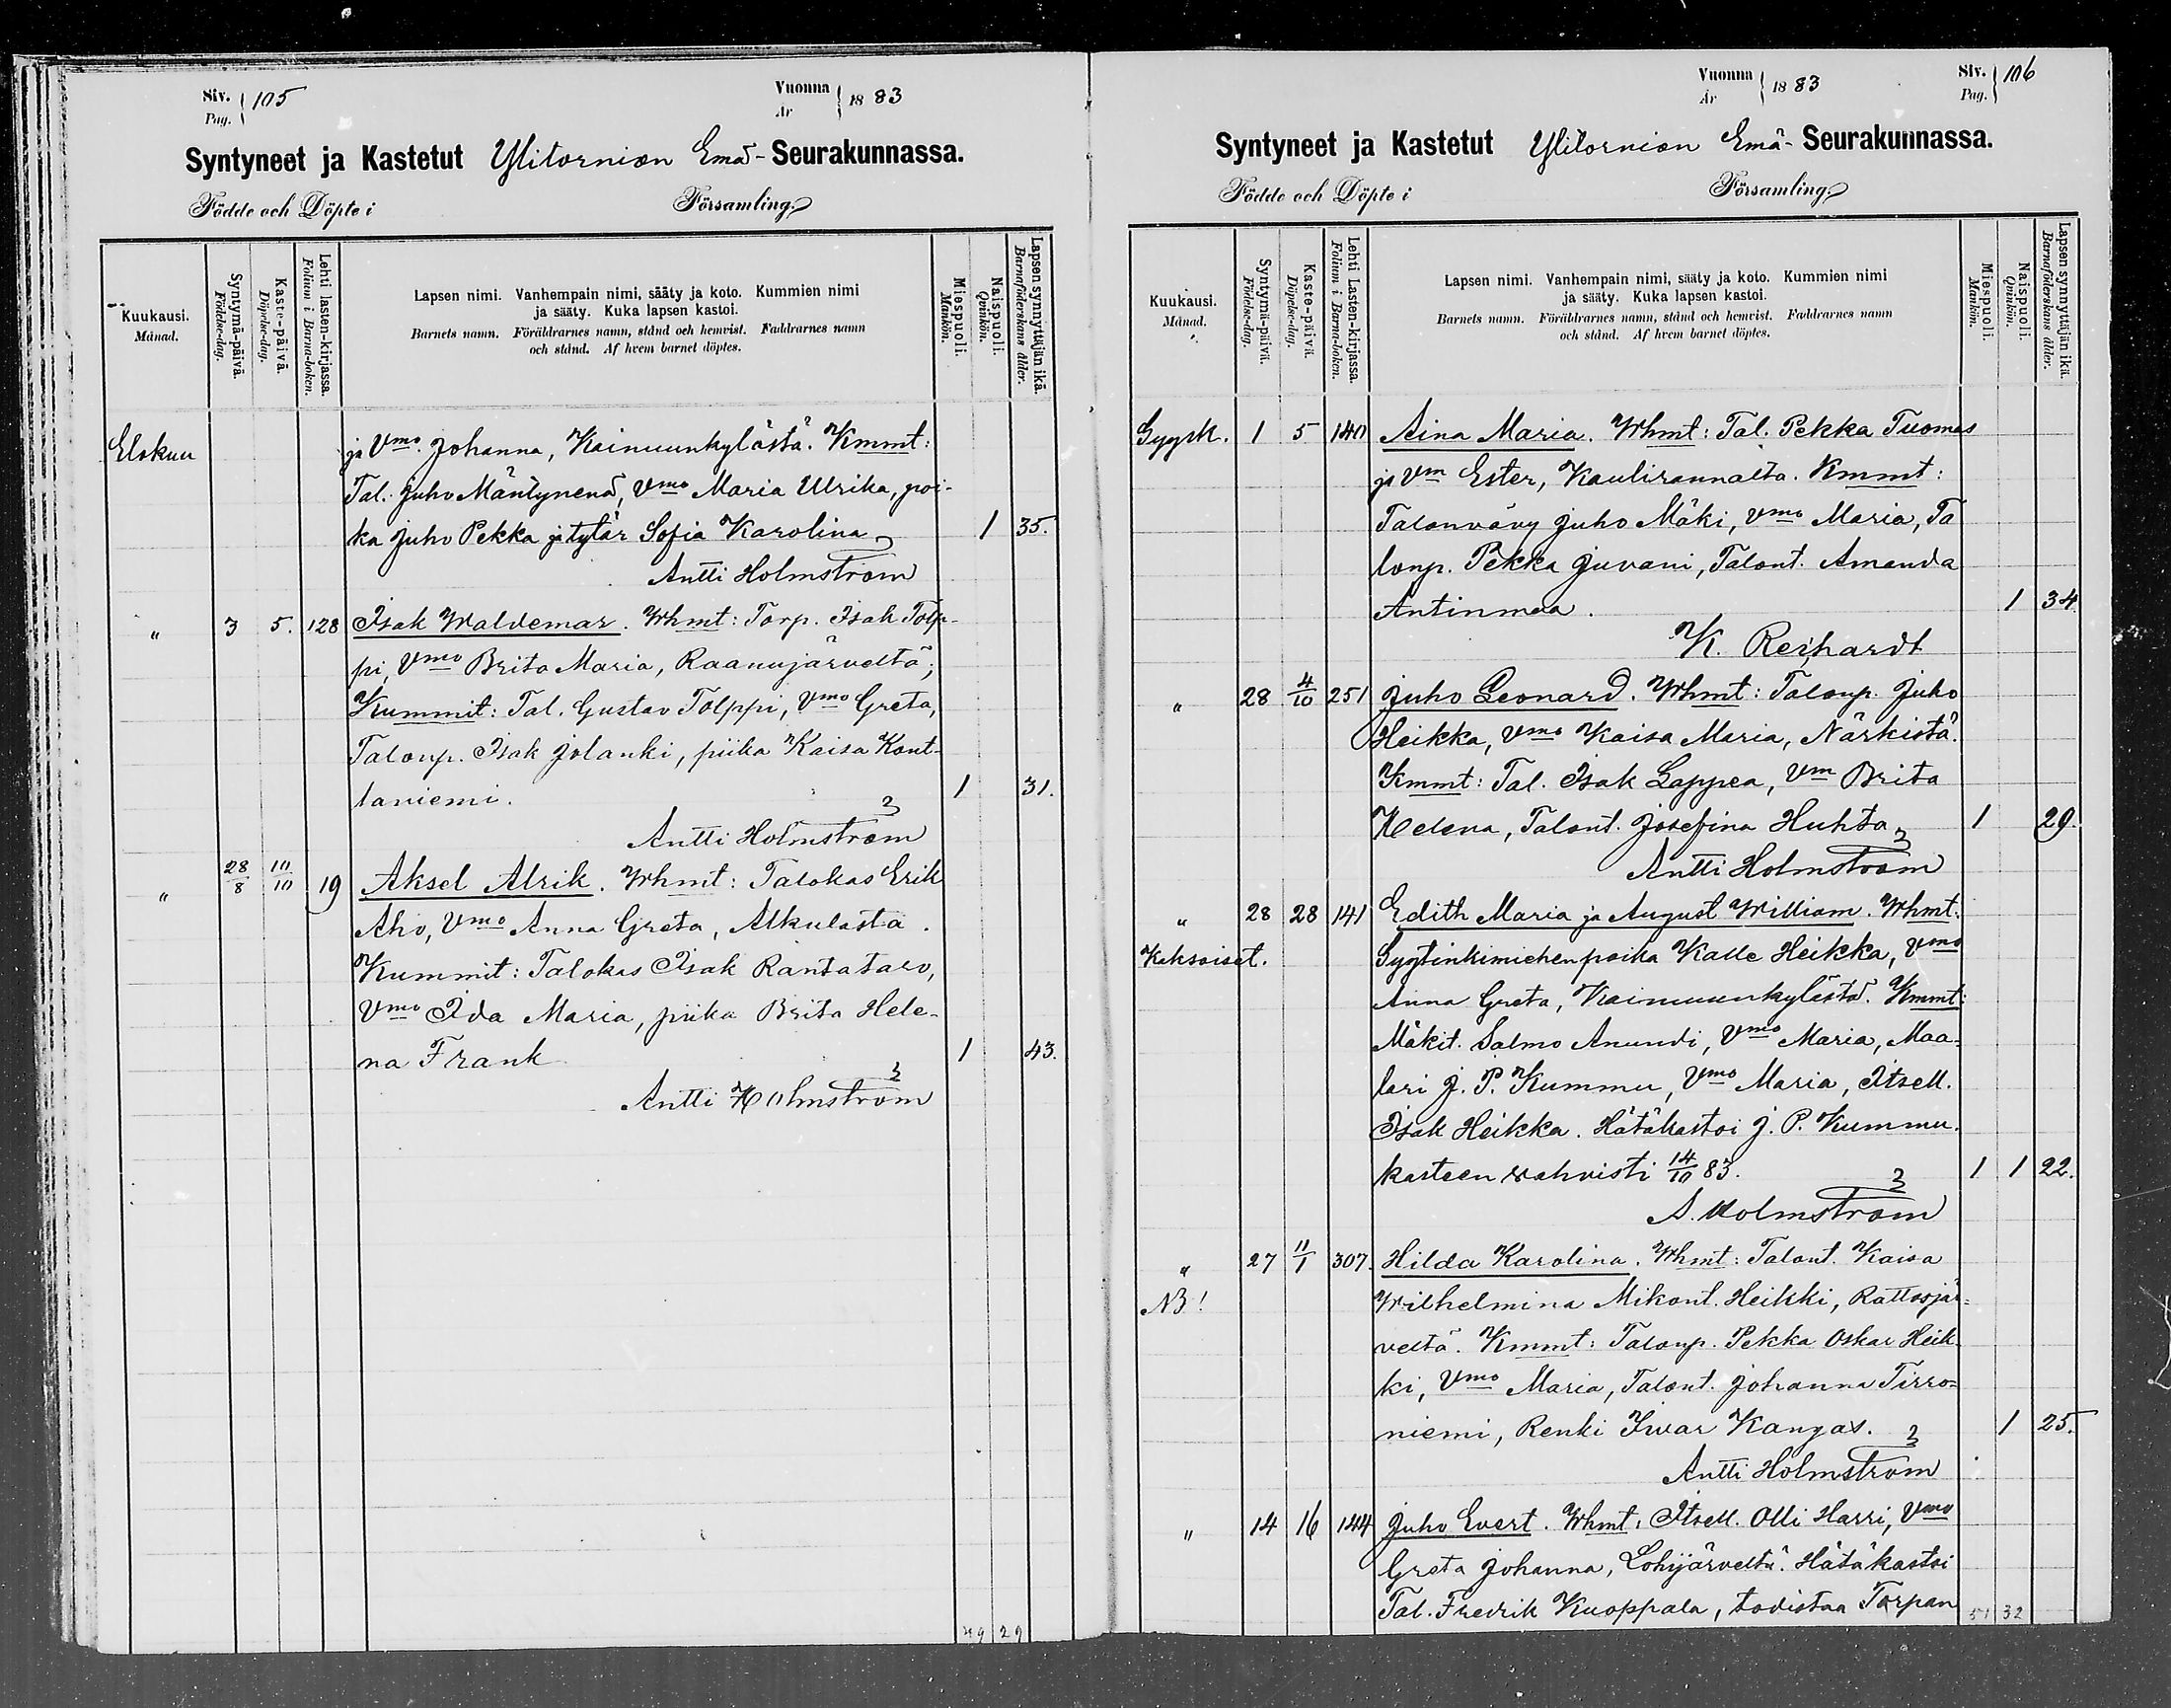 Siv. 105
Pag.
Vuonna 1883
År
Syntyneet ja Kastetut Ylitornion Emä-Seurakunnassa.
Födde och Döpte i Församling.
Kuukausi.
Månad.
Syntymä-päivä.
Födelse-dag.
Kaste-päivä.
Döpelse-dag.
Lehti lasten-kirjassa.
Folium i Barna-boken.
Lapsen nimi. Vanhempain nimi, sääty ja koto. Kummien nimi
ja sääty. Kuka lapsen kastoi.
Barnets namn. Föräldrarnes namn, stånd och hemvist. Faddrarnes namn
och stånd. Af hvem barnet döptes.
Miespuoli.
Mankön.
Naispuoli.
Qvinkön.
Lapsen synnyttäjän ikä.
Barnaföderskans ålder.
Elokuu ja Vmo. Johanna, Kainuunkylästä. Kmmt:
Tal. Juho Mäntynenä, Vmo Maria Ulrika, poi-
ka Juho Pekka ja tytär Sofia Karolina 1 35.
Antti Holmström
" 3 5. 128 Isak Waldemar. Whmt: Torp. Isak Tolp-
pi, Vmo Brita Maria, Raanujärveltä;
Kummit: Tal. Gustav Tolppi, Vmo Greta,
Talonp. Isak Jolanki, piika Kaisa Kont-
taniemi. 1 31.
Antti Holmström
" 28/8 10/10 19 Aksel Alrik. Whmt: Talokas Erik
Aho, Vmo Anna Greta, Alkulasta.
Kummit: Talokas Isak Rantatalo,
Vmo Ida Maria, piika Brita Hele-
na Frank 1 43.
Antti Holmström
49 29
Vuonna 1883
År
Siv. 106
Pag.
Syntyneet ja Kastetut Ylitornion Emä-Seurakunnassa.
Födde och Döpte i Församling.
Kuukausi.
Månad.
Syntymä-päivä.
Födelse-dag.
Kaste-päivä.
Döpelse-dag.
Lehti Lasten-kirjassa.
Folium i Barna-boken.
Lapsen nimi. Vanhempain nimi, sääty ja koto. Kummien nimi
ja sääty. Kuka lapsen kastoi.
Barnets namn. Föräldrarnes namn, stånd och hemvist. Faddrarnes namn
och stånd. Af hvem barnet döptes.
Miespuoli.
Mankön.
Naispuoli.
Qvinkön.
Lapsen synnyttäjän ikä.
Barnaföderskans ålder.
Syysk. 1 5 140 Aina Maria. Whmt: Tal. Pekka Tuomas
ja Vm Ester, Kaulirannalta. Kmmt:
Talonvävy Juho Mäki, Vmo Maria, Ta
lonp. Pekka Juvani, Talont. Amanda
Antinmaa. 1 34.
K. Reihardt
" 28 4/10 251 Juho Leonard. Whmt: Talonp. Juho
Heikka, Vmo Kaisa Maria, Närkistä.
Kmmt: Tal. Isak Lappea, Vm Brita
Helena, Talont. Josefina Huhta 1 29.
Antti Holmström
" 28 28 141 Edith Maria ja August William. Whmt.
Kaksoiset. Syytinkimiehenpoika Kalle Heikka, Vmo
Anna Greta, Kainuunkylästä. Kmmt:
Mäkit. Salmo Anundi, Vmo Maria, Maa-
lari J. P. Kummu, Vmo Maria, Itsell.
Isak Heikka. Hätäkastoi J. P. Kummu.
kasteen vahvisti 14/10 83. 1 1 22.
A. Holmström
" 27 11/1 307. Hilda Karolina. Whmt: Talont. Kaisa
NB! Wilhelmina Mikont. Heikki, Rattosjär-
veltä. Kmmt: Talonp. Pekka Oskar Heik
ki, Vmo Maria, Talont. Johanna Tirro-
niemi, Renki Iwar Kangas. 1 25.
Antti Holmström
" 14 16 144 Juho Evert. Whmt: Itsell. Olli Harri, Vmo
Greta Johanna, Lohijärveltä. Hätäkastoi
Tal. Fredrik Kuoppala, todistaa Torpan
51 32